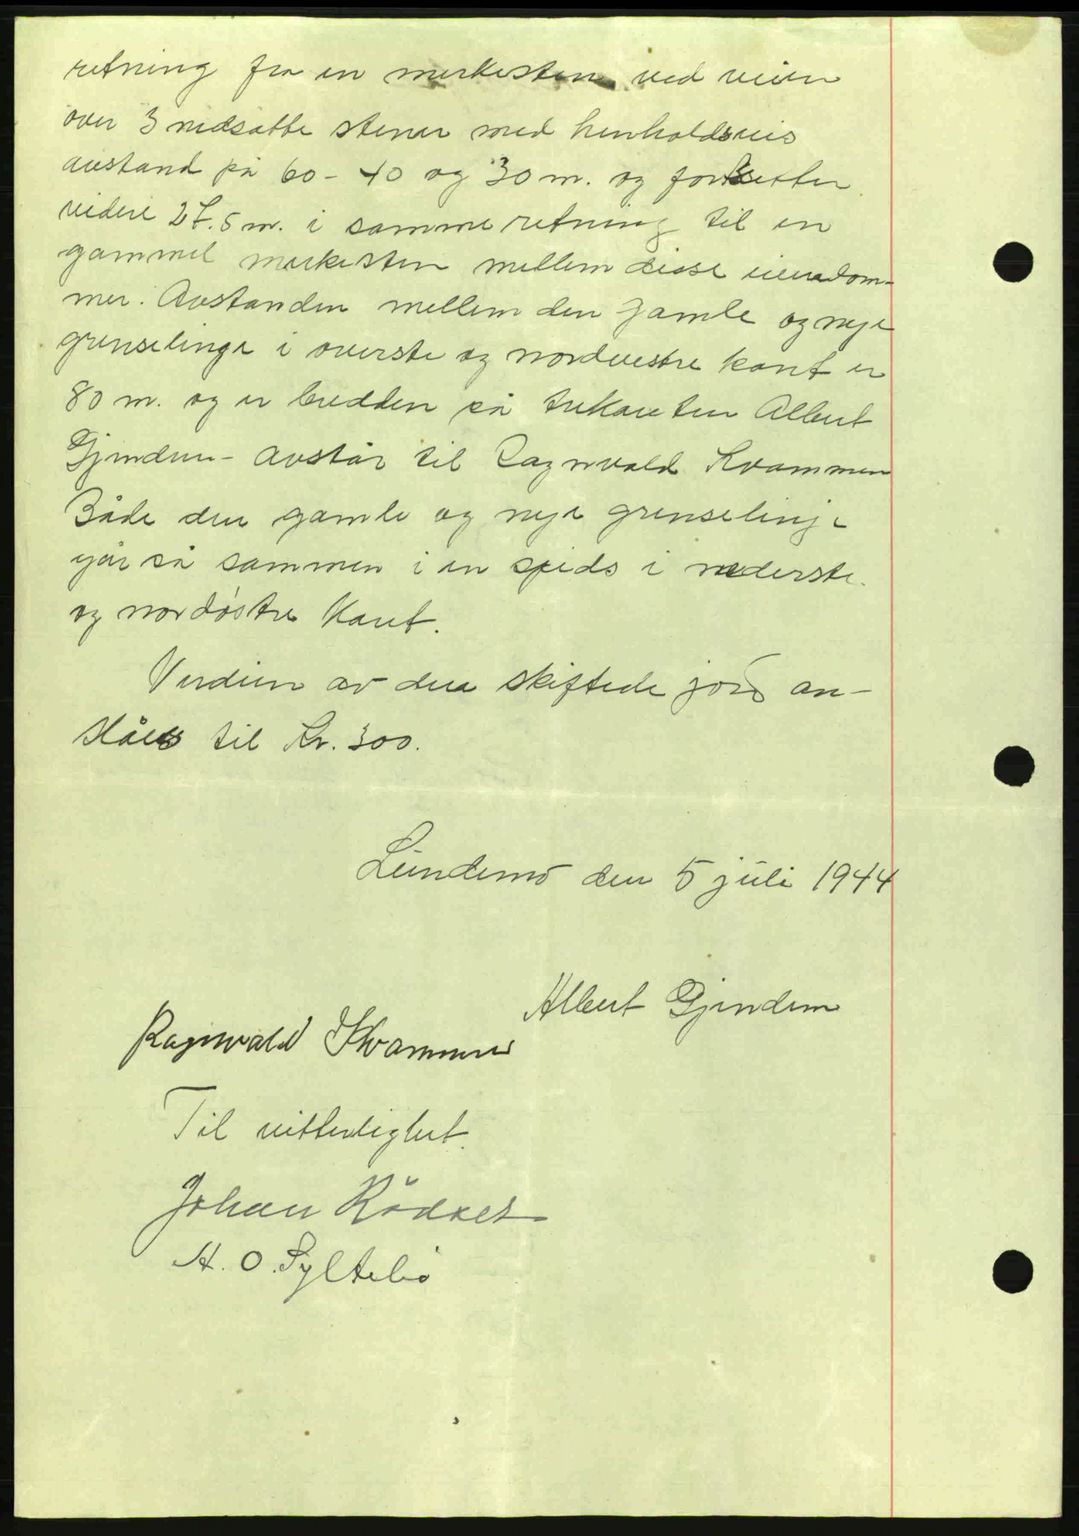 retning fra en merkesten ved veien
over 3 nedsatte stener med henholdsvis
avstand på 60 - 40 og 30 m. og fortsetter
videre 27.5 m. i samme retning til en
gammel merkesten mellem disse eiendom-
mer. Avstanden mellem den gamle og nye
grenselinge i øverste og nordvestre kant er
80 m. og er bredden på trekanten Albert
Gjendem - avstår til Ragnvald Kvammen
Både den gamle og nye grenselinje
går så sammen i en spids i nederste
og nordøstre kant.
Verdien av den skiftede jord an-
slåes til Kr. 300.
den 5 juli 1944
Albert Gjendem
Ragnvald Kvammen
Til vitterlighet.
Johan
O. Syltebø